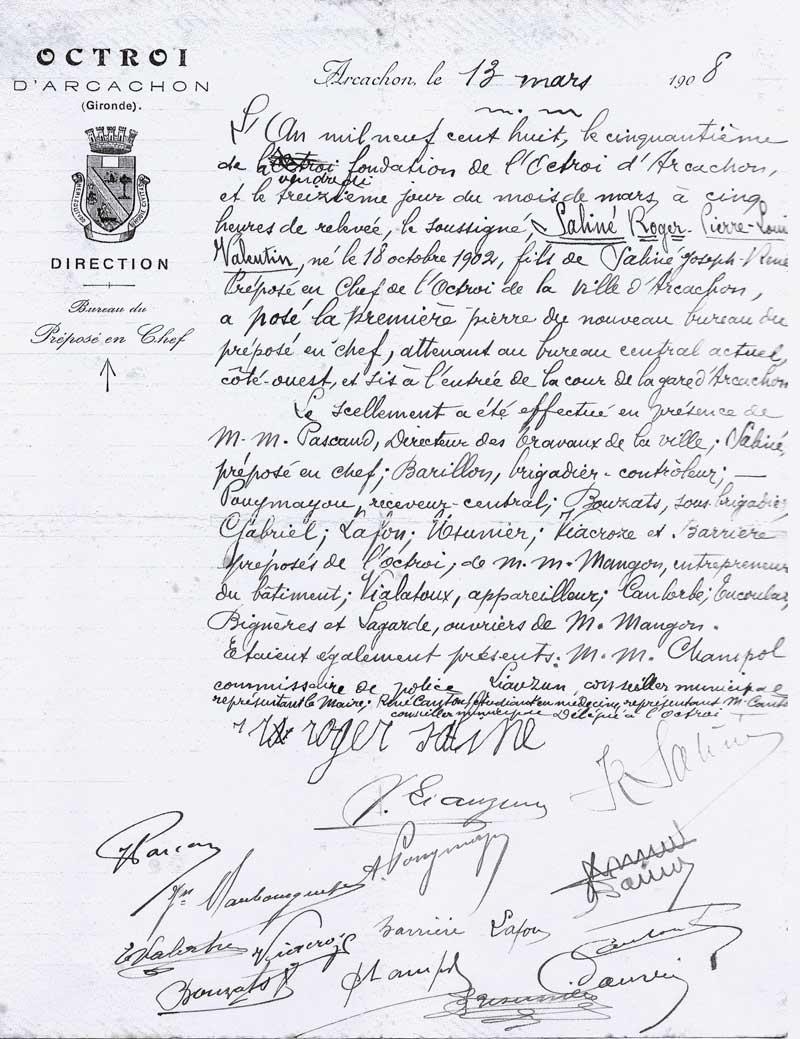 OCTROI
D'ARCACHON
(Gironde).
DIRECTION
Bureau du
Préposé en Chef
Arcachon, le 13 mars 1908
L'An mil neuf cent huit, le cinquantième
de la fondation de l'Octroi d'Arcachon,
vendredi
et le treizième jour du mois de mars, à cinq
heures de relevée, le soussigné, Saliné Roger-Pierre-Louis
Valentin, né le 18 octobre 1902, fils de Saliné Joseph-René
Préposé en Chef de l'Octroi de la ville d'Arcachon,
a posé la première pierre du nouveau bureau du
préposé en chef, attenant au bureau central actuel,
côté-ouest, et sis à l'entrée de la cour de la gare d'Arcachon
Le scellement a été effectué en présence de
M. M. Pascaud, Directeur des travaux de la ville; Saliné,
préposé en chef; Barillon, brigadier-contrôleur; —
Pouymayou, receveur-central; Bouzats, sous-brigadier,
Gabriel; Lafon; Usumier; Viacroze et Barrière
préposés de l'octroi; de M. M. Mangon, entrepreneur
du bâtiment; Vialatoux, appareilleur;
Bignères et Lagarde, ouvriers de M. Mangon.
Etaient également présents: M. M. Champol
commissaire de police Liauzun, conseiller municipal
représentant le Maire; René étudiant en médecine, représentant M.
conseiller municipal Délégué à l'octroi
roger saline
Saliné
Liauzun
A. Pouymayou
Barrière Lafon
Viacroze
Bouzats
Champol
Usumier